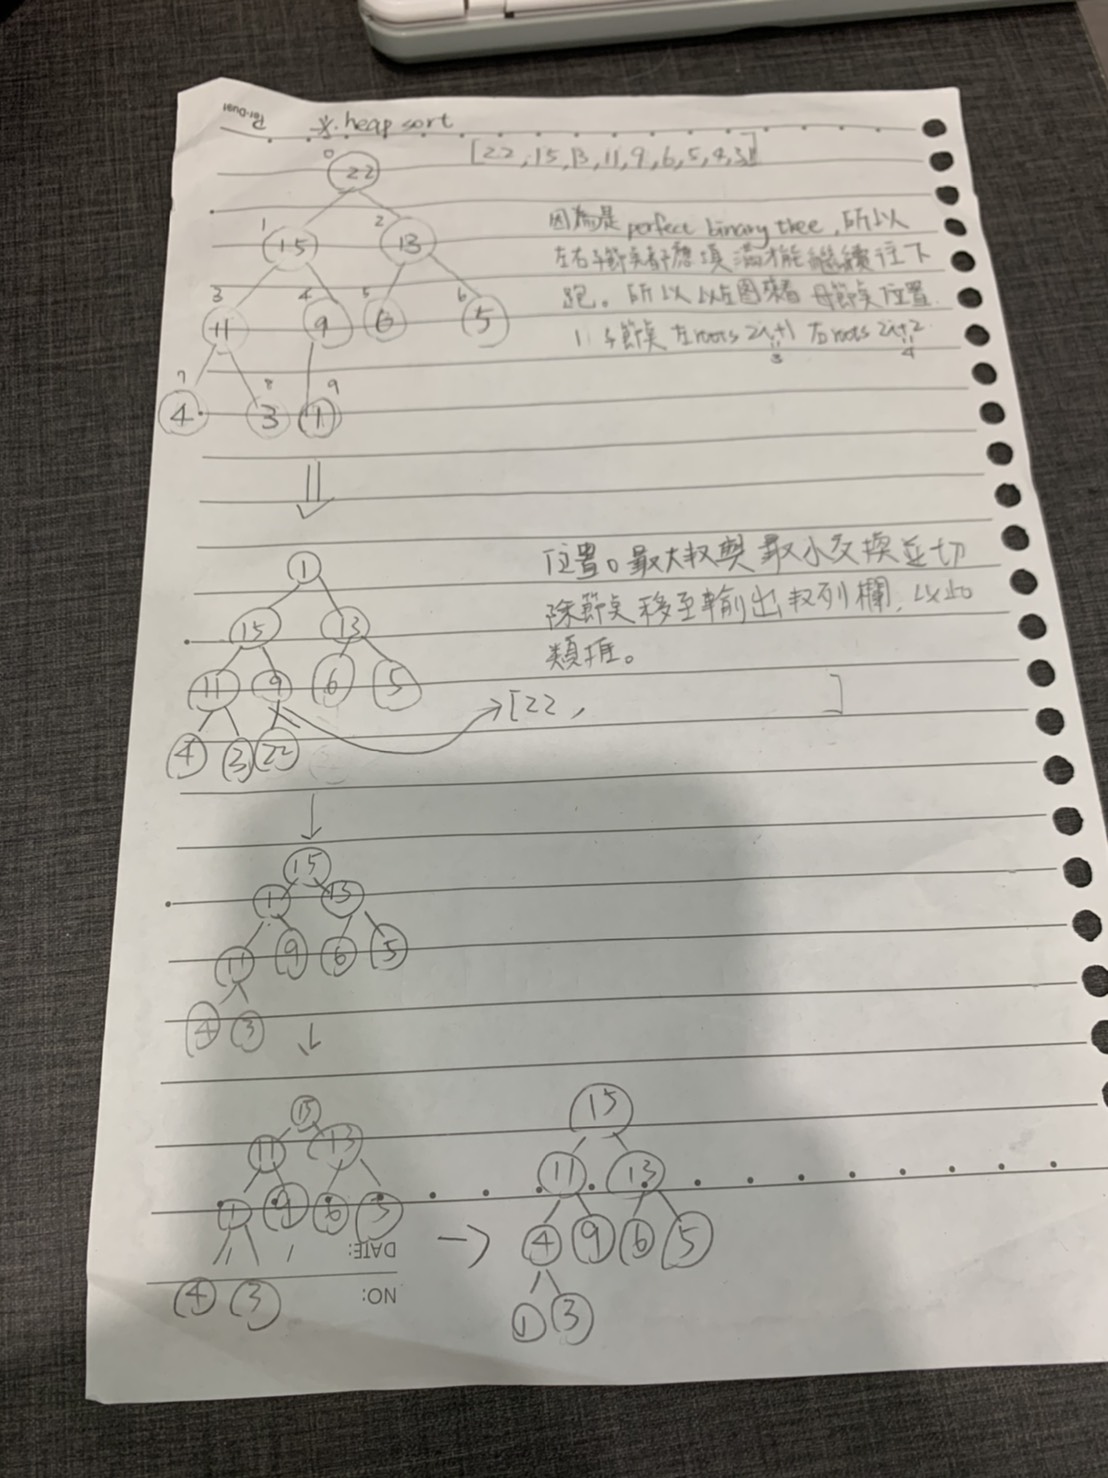 Per.Ques
※.heap sort
[22,15,13,11,9,6,5,4,3,1]
0
22
1 2
15 13
3 4 5 6
11 9 6 5
7 8 9
4 3 1
因為是 perfect binary thee,所以
左右子節點都應填滿才能繼續往下
跑。所以以左圖來看 母節點位置
1: 子節點 左roots 2i+1 右roots 2i+2
3 4
1
15 13
11 9 6 5
4 3 22
位置0最大放與最小交換並切
除節點移至輸出 列欄,以此
類推。
[22, ]
15
1 13
11 9 6 5
4 3
15
11 13
1 9 6 5
4 3
15
11 13
4 9 6 5
1 3
DATE:
NO: